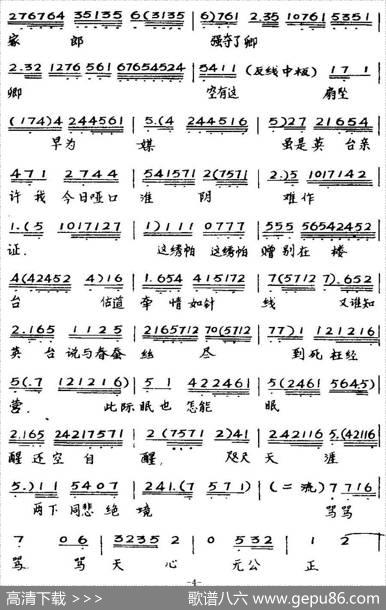 276764 35135 6(3135 6)761 2.35 10761 5351
家 郎 强夺了卿
2.32 1276 561 67654524 5411 (反线中板) 17 1
卿 空有这 扇坠
(174)4 244561 5.(4 244516 5)27 21654
早为 媒 虽是英台亲
471 2744 541571 2(7571 2.)5 1017142
许我 今日哑口 淮阴 难作
1.(5 1017127 1)111 0777 555 56542452
证. 这绣帕 这绣帕 赠别在楼
4(42452 4)16 1.654 415172 7(5712 7).652
台 估道 牵情如针 线 又谁知
2.165 1125 2165712 70(5712 77)1 121216
英台说与春蚕丝 尽 到死枉经
5(.7 121216) 51 422461 5(2461 5645)
营. 此际眠也怎能 眠
2.165 24217571 2(7571 2)41 242116 5.(42116
醒还空自 醒, 咫尺天 涯
5.)11 5407 241.(7 571) (二流) 7716
两下同悲绝 境 骂骂
7 06 3235 2 0 532 12
骂 骂天心 无公正
-4-
高清下载 >>>>> 歌谱八六 www.gepu86.com